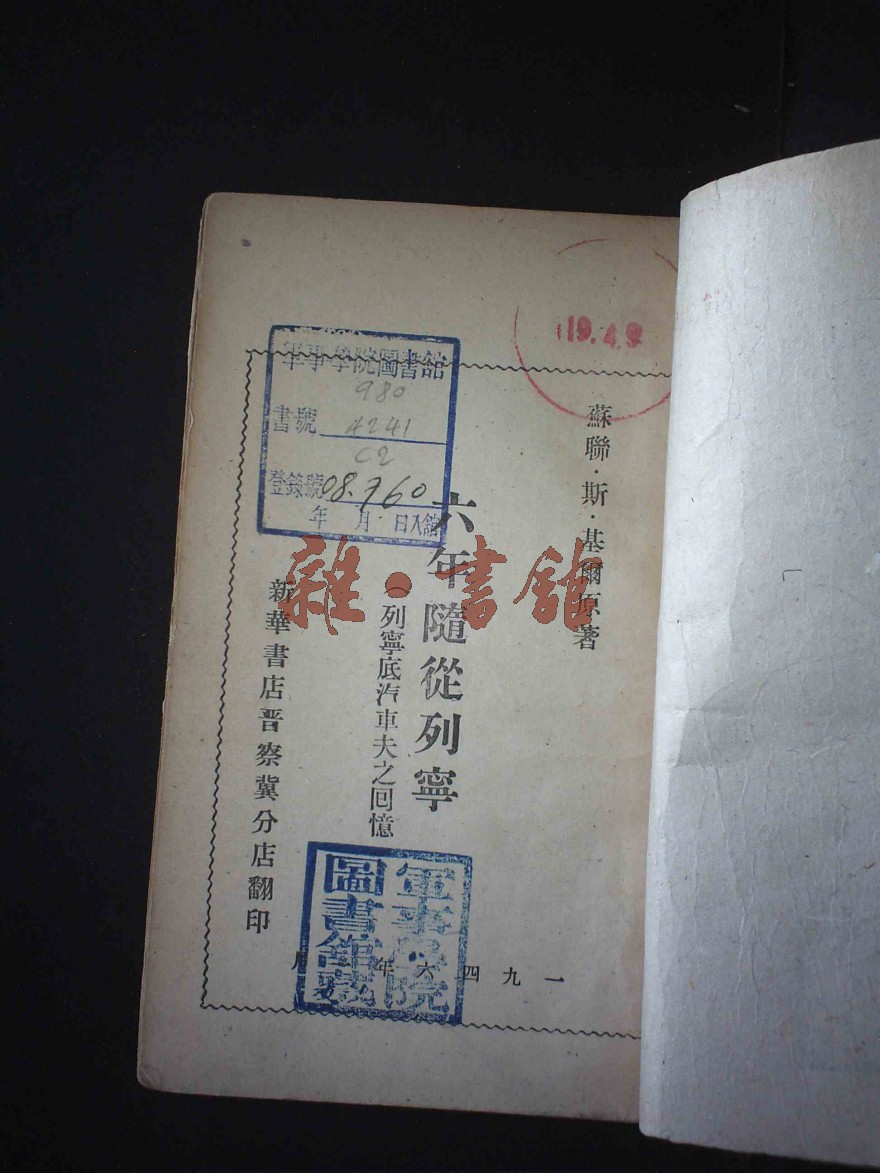 19.4.9
蘇聯·斯·基爾原著
六年隨從列寧
(列寧底汽車夫之回憶
新華書店晋察冀分店翻印
一九四六年 月
軍事學院圖書館
980
書號 4241
C2
登錄號 08.760
年 月 日入館
軍事學院
圖書館藏
雜·書館